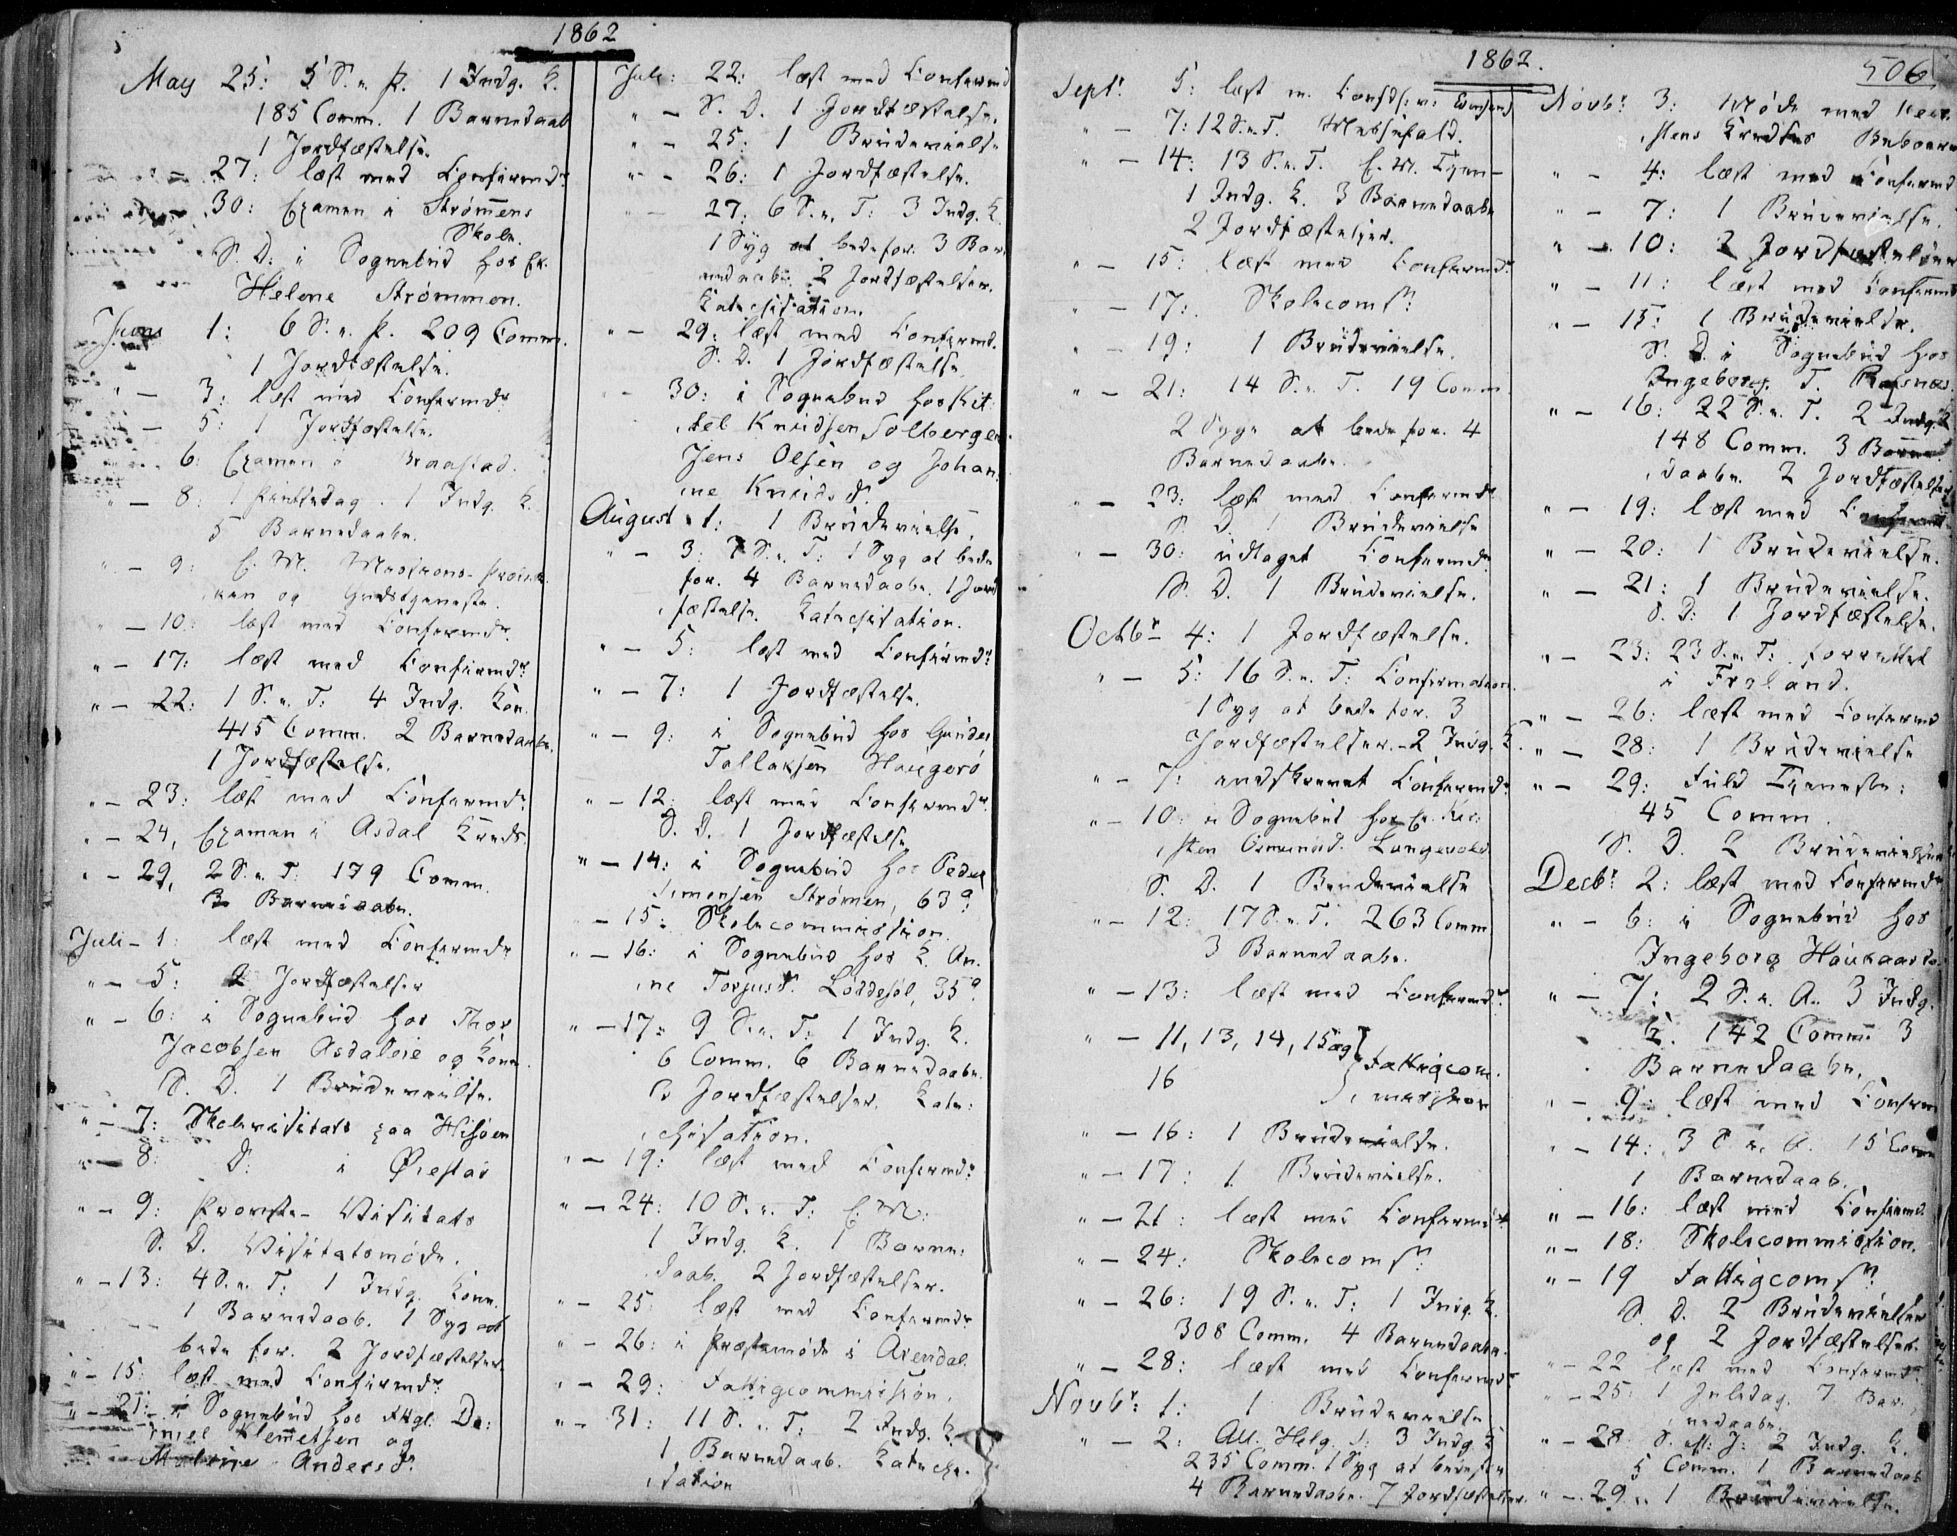 1862
May 25: 5 S. e. P. 1 Indg. K.
185 Comm. 1 Barnedaab
1 Jordfæstelse.
" - 27: læst med Confirmdr
30: Examen i Strømmens
Skole.
S. D. i Sognebud hos Ek.
Helene Strømmen.
Juni 1: 6 S. e. P. 209 Comm.
1 Jordfæstelse.
" - 3: læst med Confirmdr
- 5: 1 Jordfæstelse.
6: Examen i Braastad.
- 8: 1 Pintsedag. 1 Indg. K.
5 Barnedaabe.
" - 9: E. M. Missions-
ken og Gudstjeneste.
" - 10: læst med Confirmdr
" - 17: læst med Confirmdr
" - 22: 1 S. e. T: 4 Indg. Kon.
415 Comm. 2 Barnedaabe.
1 Jordfæstelse.
" - 23: læst med Confirmdr
" - 24, Examen i Asdal Kreds.
" - 29, 2 S. e. T: 179 Comm.
3 Barnedaabe.
Juli - 1: læst med Confirmdr
" - 5: 2 Jordfæstelser
" - 6: i Sognebud hos Thor
Jacobsen Asdaleie og Kone.
S. D. 1 Brudevielse.
" - 7: Skolevisitats paa Hisøen
" - 8: D: i Øiestad
" - 9: Provste-Visitats
S. D. Visitatsmøde.
" - 13: 4 S. e. T: 1 Indg. Kone.
1 Barnedaab. 1 Syg at
bede for. 2 Jordfæstelser
" - 15: læst med Confirmdr
" - 21: i Sognebud hos Da:
niel Klemetsen og
Andersd.
Juli: 22: læst med Confirmd
" - S. D. 1 Jordfæstelse.
" - 25: 1 Brudevielse
" - 26: 1 Jordfæstelse.
" - 27: 6 S. e. T: 3 Indg. K.
1 Syg at bede for. 3 Bar:
nedaabe. 2 Jordfæstelser.
Katechisation.
" - 29: læst med Confirmd.
S. D. 1 Jordfæstelse.
" - 30: i Sognebud hos Kit:
tel Knudsen Solbergen.
Jens Olsen og Johan:
ne Knudsd.
August 1: 1 Brudevielse.
" - 3: 7 S. e. T: 1 Syg at bede
for. 4 Barnedaabe. 1 Jord
fæstelse. Katechisation.
" - 5: læst med Confirmdr
" - 7: 1 Jordfæstelse.
" - 9: i Sognebud hos Gunder
Tallaksen Haugerø
" - 12: læst med Confirmdr
S. D. 1 Jordfæstelse
" - 14: i Sognebud hos Peder
Simonsen Strømen, 63 a.
- 15: Skolecommission.
" - 16: i Sognebud hos K. An:
ne Torjusd. Løddesøl, 35 a.
" - 17: 9 S. e. T: 1 Indg. K.
6 Comm. 6 Barnedaabe.
3 Jordfæstelser. Kate:
chisation.
" - 19: læst med Confirmdr
" - 24: 10 S. e. T: E. M.
1 Indg. K. 1 Barne:
daab. 2 Jordfæstelser.
" - 25: læst med Confirmdr
" - 26: i Præstemøde i Arendal.
" - 29: Fattigcommission.
" - 31: 11 S. e. T: 2 Indg. K.
1 Barnedaab. Kateche:
sation
1862.
506
Septr 5: læst m. Confdr:
" - 7: 12 S. e. T. Messefald.
" - 14: 13 S. e. T. E. M. Tjen-
1 Indg. K. 3 Barnedaabe
2 Jordfæstelser.
" - 15: læst med Confirmdr
" - 17: Skolecomsn
" - 19: 1 Brudevielse.
" - 21: 14 S. e. T. 19 Comm
2 Syge at bede for. 4
Barnedaabe.
" - 23: læst med Confirmdr
S. D. 1 Brudevielse
" - 30: udtaget Confirmdr
S. D. 1 Brudevielse.
Octbr - 4: 1 Jordfæstelse.
" - 5: 16 S. e. T: Confirmation.
1 Syg at bede for. 3
Jordfæstelser. - 2 Indg. K.
" - 7: indskrevet Confirmdr
" - 10: i Sognebud hos Ek. Kir:
sten Osmunsd. Langevold
S. D. 1 Brudevielse
" - 12: 17 S. e. T. 263 Comm
3 Barnedaabe.
" - 13: læst med Confirmdr
" - 11, 13, 14, 15 og } Fattigcom:
16 } mission
" - 16: 1 Brudevielse.
" - 17: 1 Brudevielse.
" - 21: læst med Confirmdr
" - 24: Skolecomsn
" - 26: 19 S. e. T: 1 Indg. K.
308 Comm. 4 Barnedaabe.
" - 28: læst med Confirmdr
Novbr: 1: 1 Brudevielse
" - 2: All. Helg. D: 3 Indg. K
235 Comm. 1 Syg at bede for
4 Barnedaabe. 7 Jordfæstelser.
Novbr 3: Møde med
stens Kredses Beboere
" - 4: læst med Confirmd
" - 7: 1 Brudevielse.
" - 10: 2 Jordfæstelser
" - 11: læst med Confirmd
" - 15: 1 Brudevielse.
S. D. i Sognebud hos
Ingeborg T. Refsnæs.
" - 16: 22 S. e. T. 2 Indg. K
148 Comm. 3 Barne
daabe. 2 Jordfæstelser
" - 19: læst med
" - 20: 1 Brudevielse.
" - 21: 1 Brudevielse.
S. D: 1 Jordfæstelse.
" - 23: 23 S. e. T: forrettet
i Froland.
" - 26: læst med Confirmd
" - 28: 1 Brudevielse
" - 29: Fuld Tjeneste:
45 Comm.
S. D. 2 Brudevielser
Decbr 2: læst med Confirmdr
" - 6: i Sognebud hos
Ingeborg
" - 7: 2 S. e. A. 3 Indg.
K. 142 Comm. 3
Barnedaabe.
" - 9: læst med Confirm
" - 14: 3 S. e. A. 15 Comm
1 Barnedaab.
" - 16: læst med Confirmd
" - 18: Skolecommission.
" - 19 Fattigcomsn
S. D. 2 Brudevielser
og 2 Jordfæstelser.
" - 22 læst med Confirmdr
" - 25: 1 Juledag. 7 Bar:
nedaabe.
" - 28: S. ef: J: 2 Indg. K.
5 Comm. 1 Barnedaab
" - 29: 1 Brudevielse.